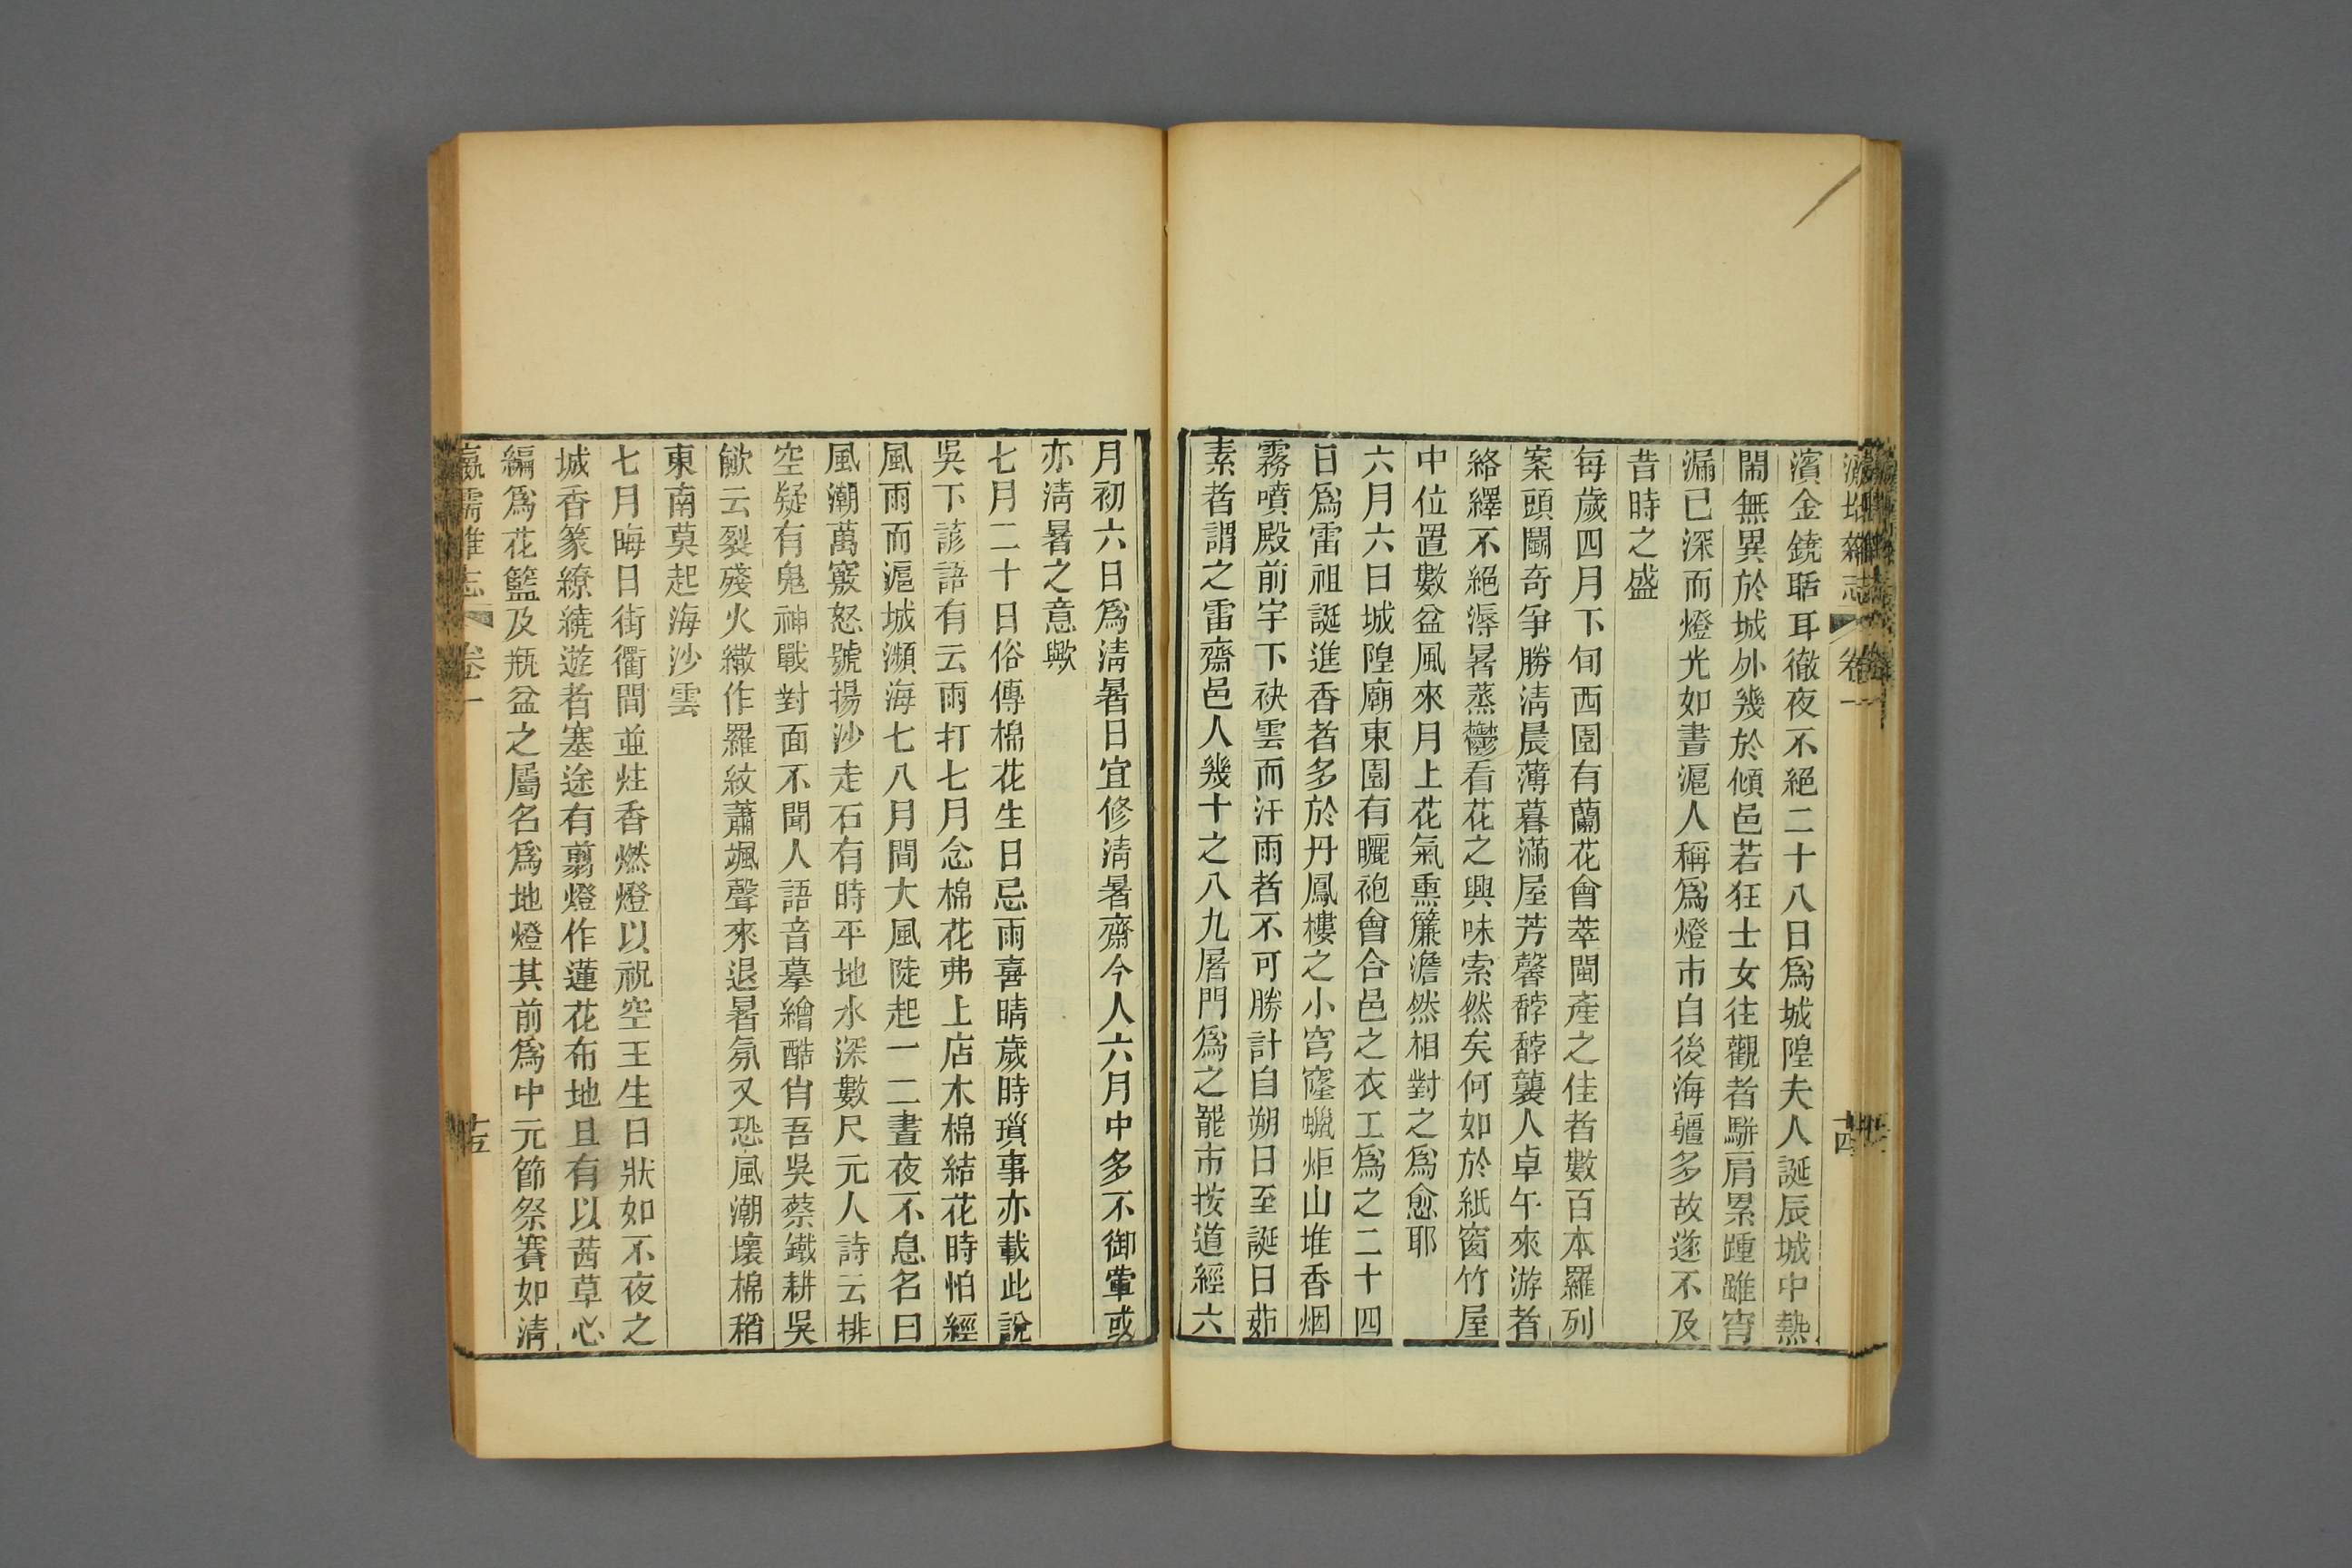 瀛壖雜志 卷一 十四
濱金鐃聒耳徹夜不絕二十八日爲城隍夫人誕辰城中熱
鬧無異於城外幾於傾邑若狂士女往觀者駢肩累踵雖宵
漏已深而燈光如晝滬人稱爲燈市自後海疆多故遂不及
昔時之盛
每歲四月下旬西園有蘭花會萃閩產之佳者數百本羅列
案頭鬭奇爭勝淸晨薄暮滿屋芳馨馞馞襲人卓午來游者
絡繹不絕溽暑蒸鬱看花之興味索然矣何如於紙窗竹屋
中位置數盆風來月上花氣熏簾澹然相對之爲愈耶
六月六日城隍廟東園有曬袍會合邑之衣工爲之二十四
日爲雷祖誕進香者多於丹鳳樓之小穹窿蠟炬山堆香烟
霧噴殿前宇下袂雲而汗雨者不可勝計自朔日至誕日茹
素者謂之雷齋邑人幾十之八九屠門爲之罷市按道經六
月初六日爲淸暑日宜修淸暑齋今人六月中多不御葷或
亦淸暑之意歟
七月二十日俗傳棉花生日忌雨喜晴歲時瑣事亦載此說
吳下諺語有云雨打七月念棉花弗上店木棉結花時怕經
風雨而滬城瀕海七八月間大風陡起一二晝夜不息名曰
風潮萬竅怒號揚沙走石有時平地水深數尺元人詩云排
空疑有鬼神戰對面不聞人語音摹繪酷肖吾吳蔡鐵耕吳
歈云裂殘火繖作羅紋蕭颯聲來退暑氛又恐風潮壞棉稻
東南莫起海沙雲
七月晦日街衢間並炷香燃燈以祝空王生日狀如不夜之
城香篆繚繞遊者塞途有剪燈作蓮花布地且有以茜草心
編爲花籃及瓶盆之屬名爲地燈其前爲中元節祭賽如淸
瀛壖雜志 卷一 十五